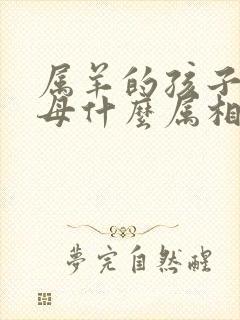 属羊的孩子
母什麼属相
夢完自然醒